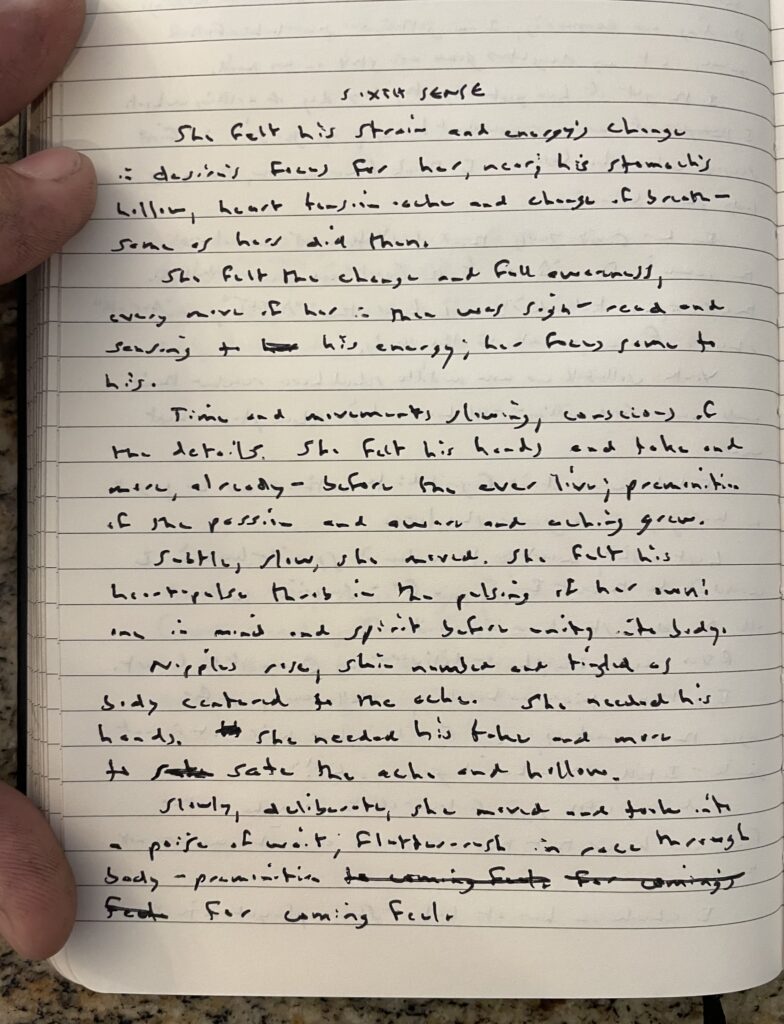 SIXTH SENSE
She felt his strain and energy's change
in desire's focus for her, near; his stomach's
hollow, heart tension-ache and change of breath -
same as hers did then.
She felt the change and full awareness,
every move of her in then was sigh-read and
sensing to his energy; her focus same to
his.
Time and movements slowing, conscious of
the details. She felt his hands and take and
more, already - before the ever live; premonition
of the passion and aware and aching grew.
Subtle, slow, she moved. She felt his
heart-pulse throb in the pulsing of her own:
one in mind and spirit before unity into body.
Nipples rose, skin numbed and tingled as
body centered to the ache. She needed his
hands. She needed his take and more
to sate the ache and hollow.
Slowly, deliberate, she moved and took into
a poise of wait; flutter-rush in race through
body - premonition to coming feel. for coming's
feel. for coming feel.